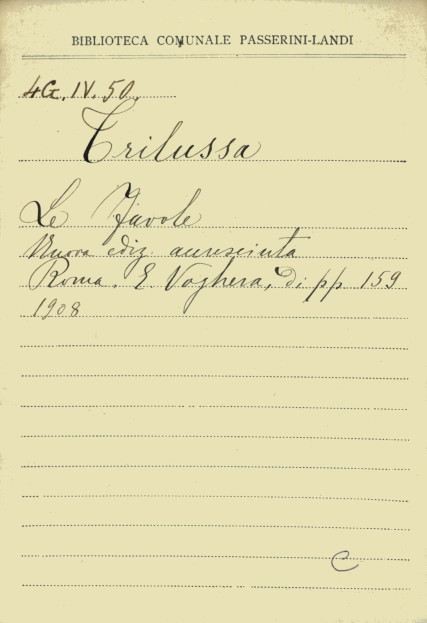 BIBLIOTECA COMUNALE PASSERINI-LANDI
4G. IV. 50.
Trilussa
Le Favole
Nuova ediz accresciuta
Roma. E. Voghera, di pp. 159
1908
C